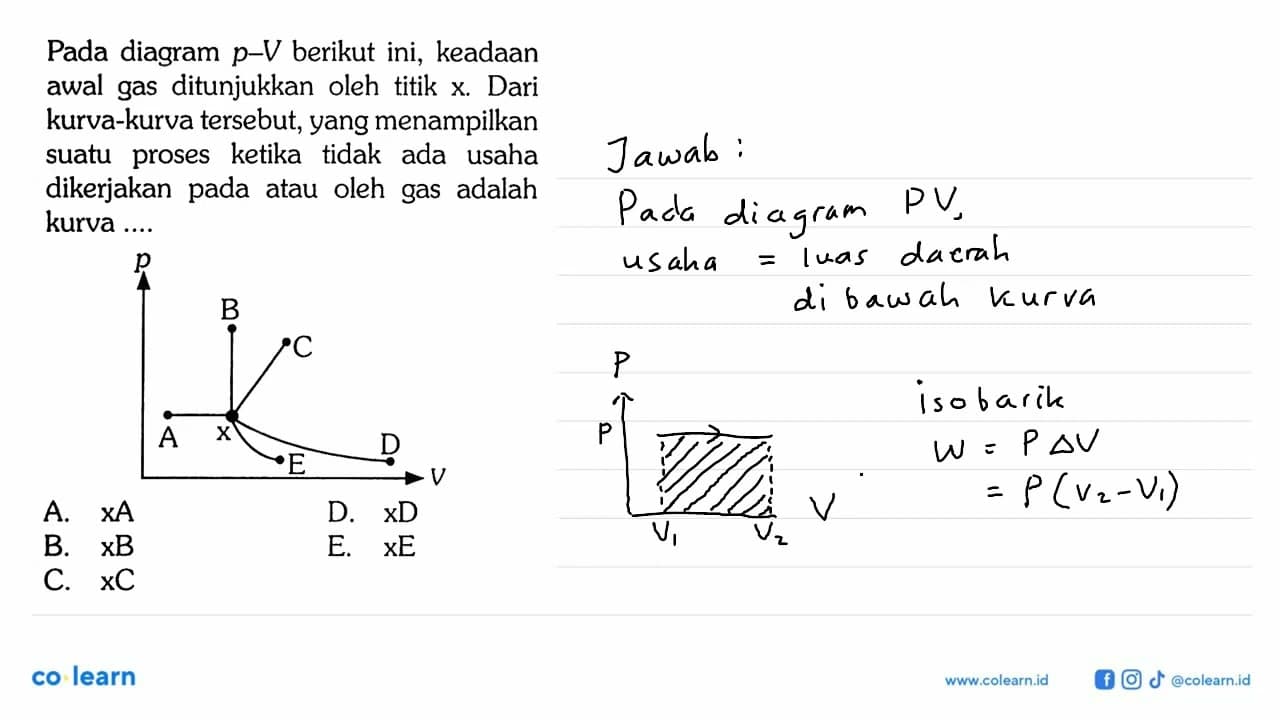 Pada diagram p–V berikut ini, keadaan
awal gas ditunjukkan oleh titik x. Dari
kurva-kurva tersebut, yang menampilkan
suatu proses ketika tidak ada usaha
dikerjakan pada atau oleh gas adalah
kurva ....
p
B
C
A
x
D
E
V
A. xA
B. xB
C. xC
D. xD
E. xE
Jawab :
Pada diagram PV,
usaha = luas daerah
di bawah kurva
P
P
V
V₁
V₂
isobarik
W = P ΔV
= P (V₂ - V₁)
co learn
www.colearn.id
@colearn.id